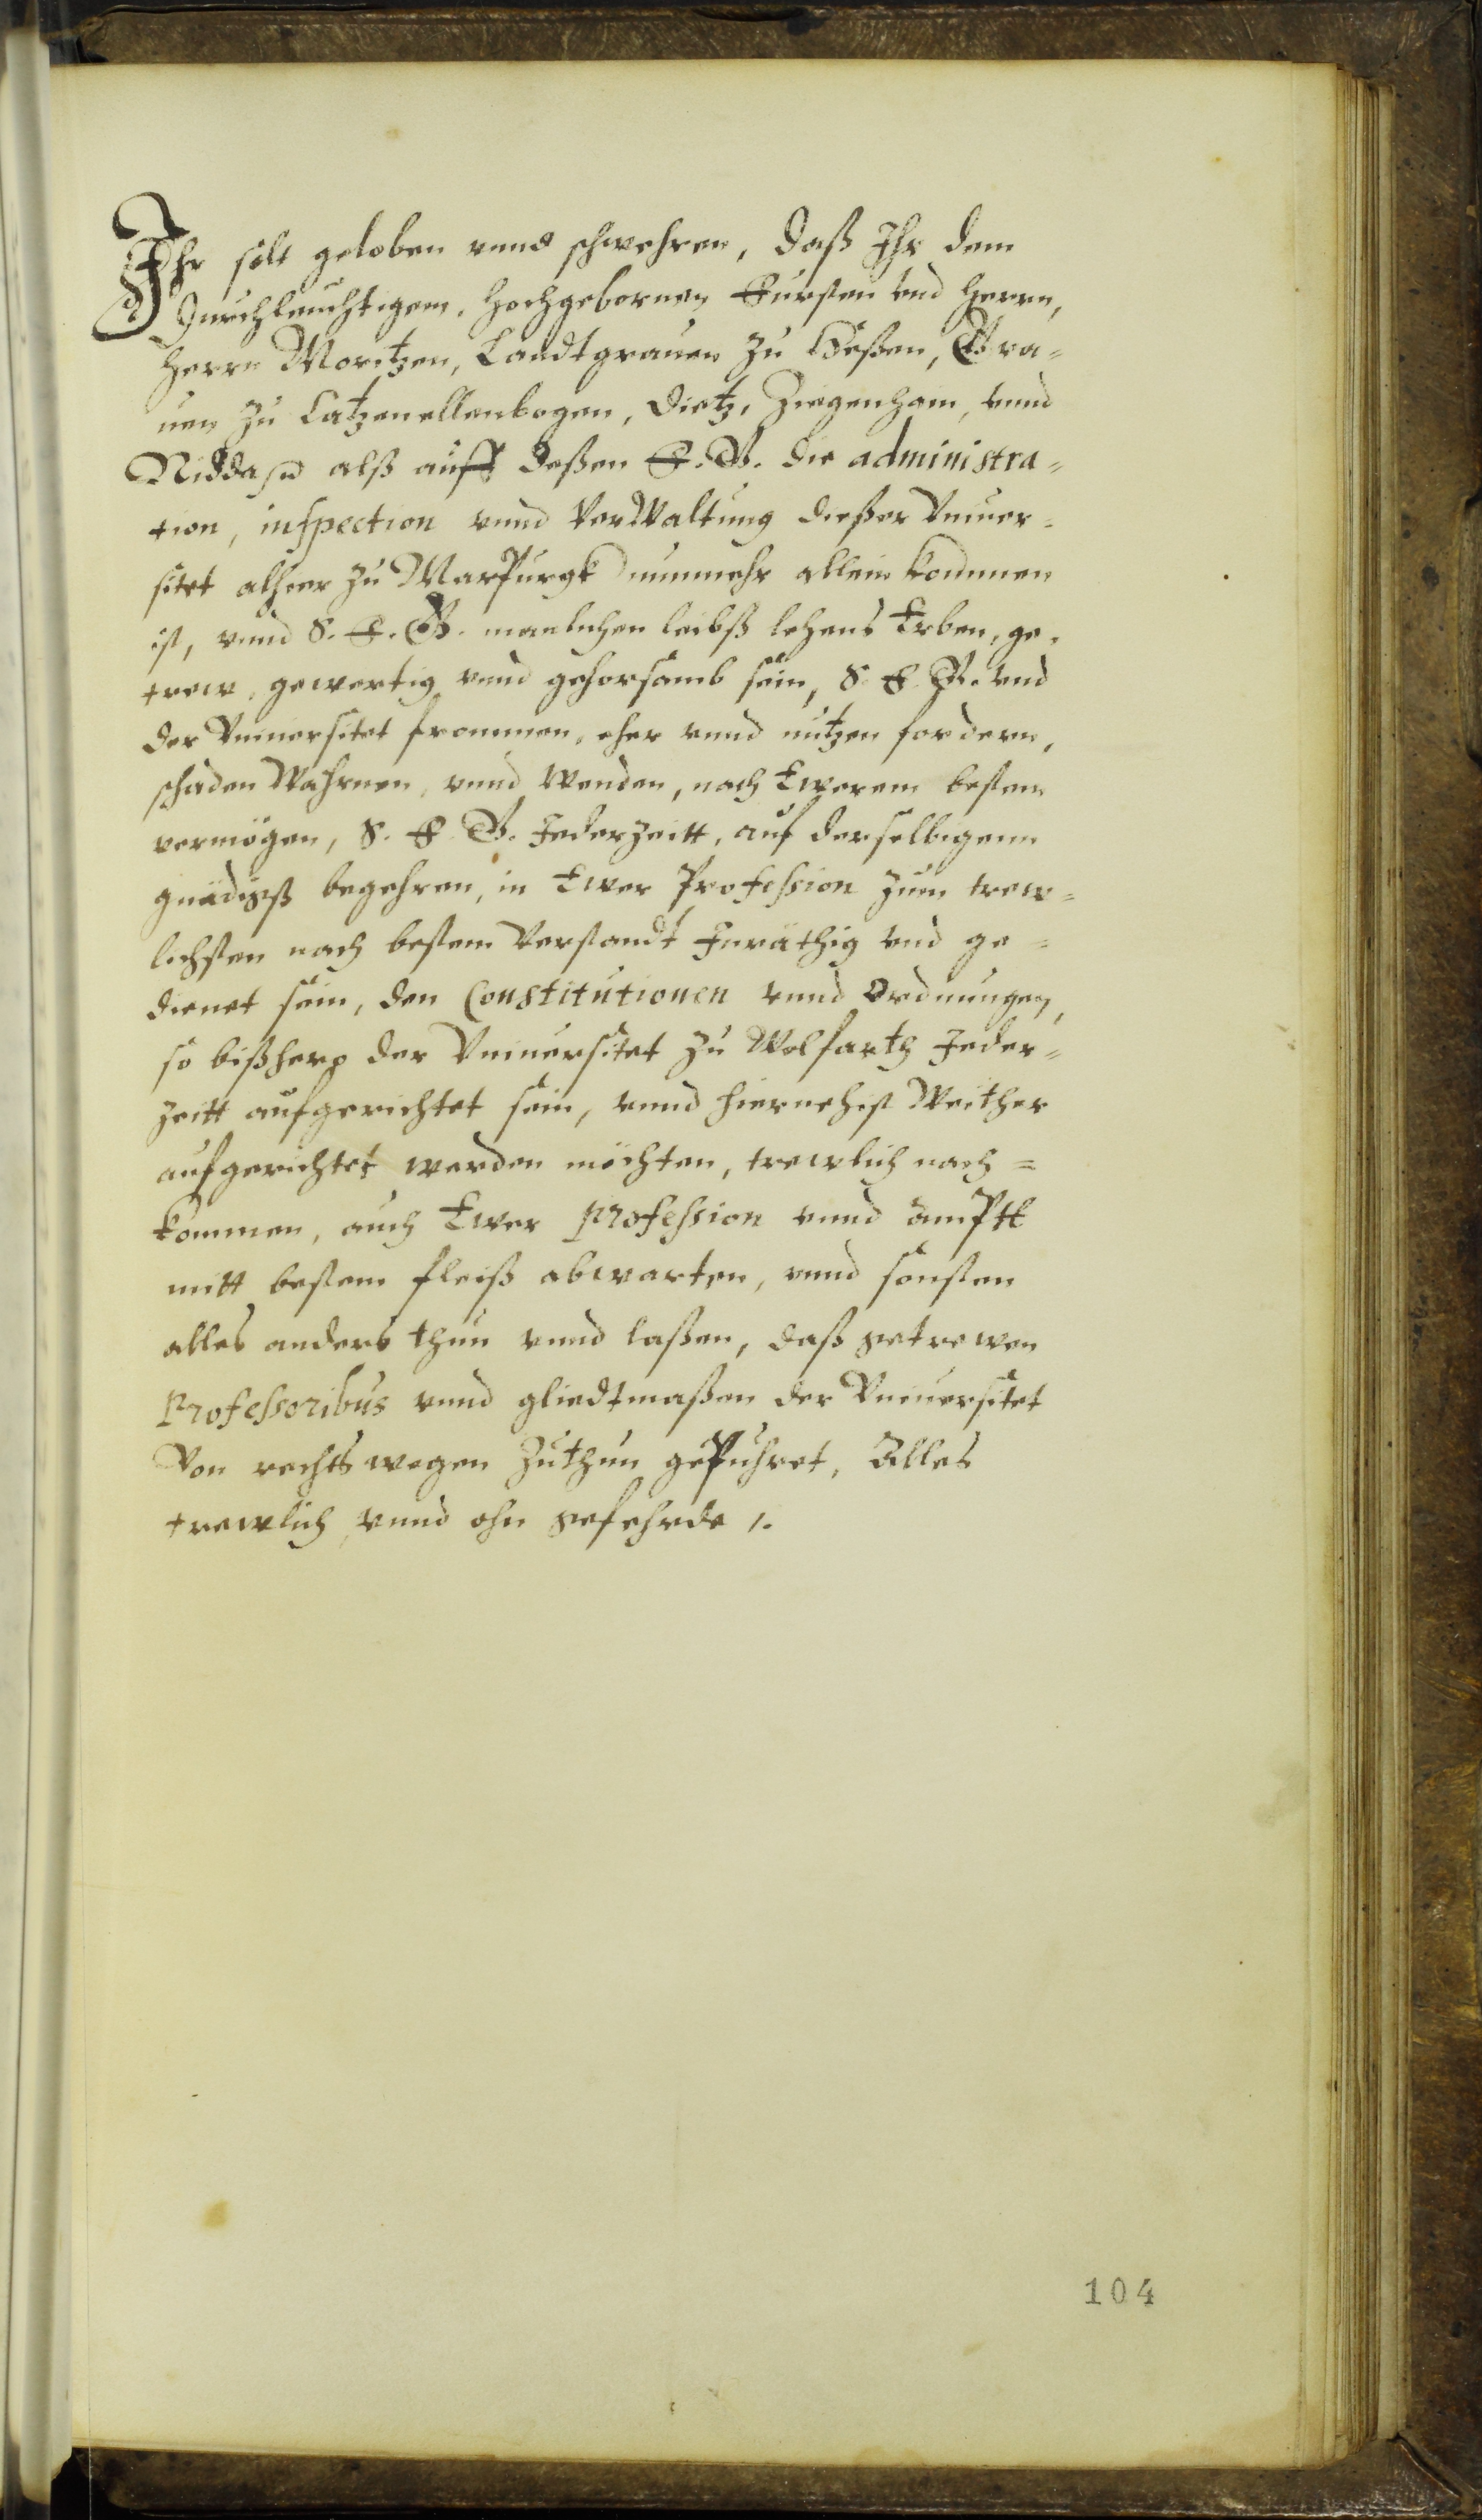 Ihr solt geloben vnnd schwehren, daß Ihr dem
Durchleuchtigem, Hochgebornen Fursten vnd Herrn,
Herrn Moritzen, Landtgrauen zu Heßen, Gra=
uen zu Catzenellenbogen, Dietz, Ziegenhain, vnnd
Nidda alß auff deßen F. G. die administra=
tion, inspection vnnd Verwaltung dießer Vniuer=
sitet alhier zu Marpurgk nunmehr allein kommen
ist, vnnd S. F. G. manlichen leibß lehens Erben, ge=
trew, gewertig vnnd gehorsamb sein, S. F. G. vnd
der Vniuersitet frommen, eher vnnd nutzen fordern,
schaden Wahrnen, vnnd Wenden, nach Ewerem bestem
vermögen, S. F. G. Jederzeitt, auf derselbigenn
gnädigß begehren, in Ewer Profession zum trew=
lichsten nach bestem Verstandt Inräthig vnd ge=
dienet sein, den Constitutionen vnnd Ordnungen,
so bißhero der Vniuersitet zu Wolfarth Jeder=
zeitt aufgerichtet sein, vnnd hiernehist Weither
aufgerichtet werden möchten, trewlich nach=
kommen, auch Ewer Profession vnnd amptt
mitt bestem fleiß abwarten, vnnd sonsten
alles anders thun vnnd laßen, daß getrewen
Professoribus vnnd gliedtmaßen der Vniuersitet
Von rechts wegen zuthun gepuhret, Alles
trewlich vnnd ohn gefehrde /.
104